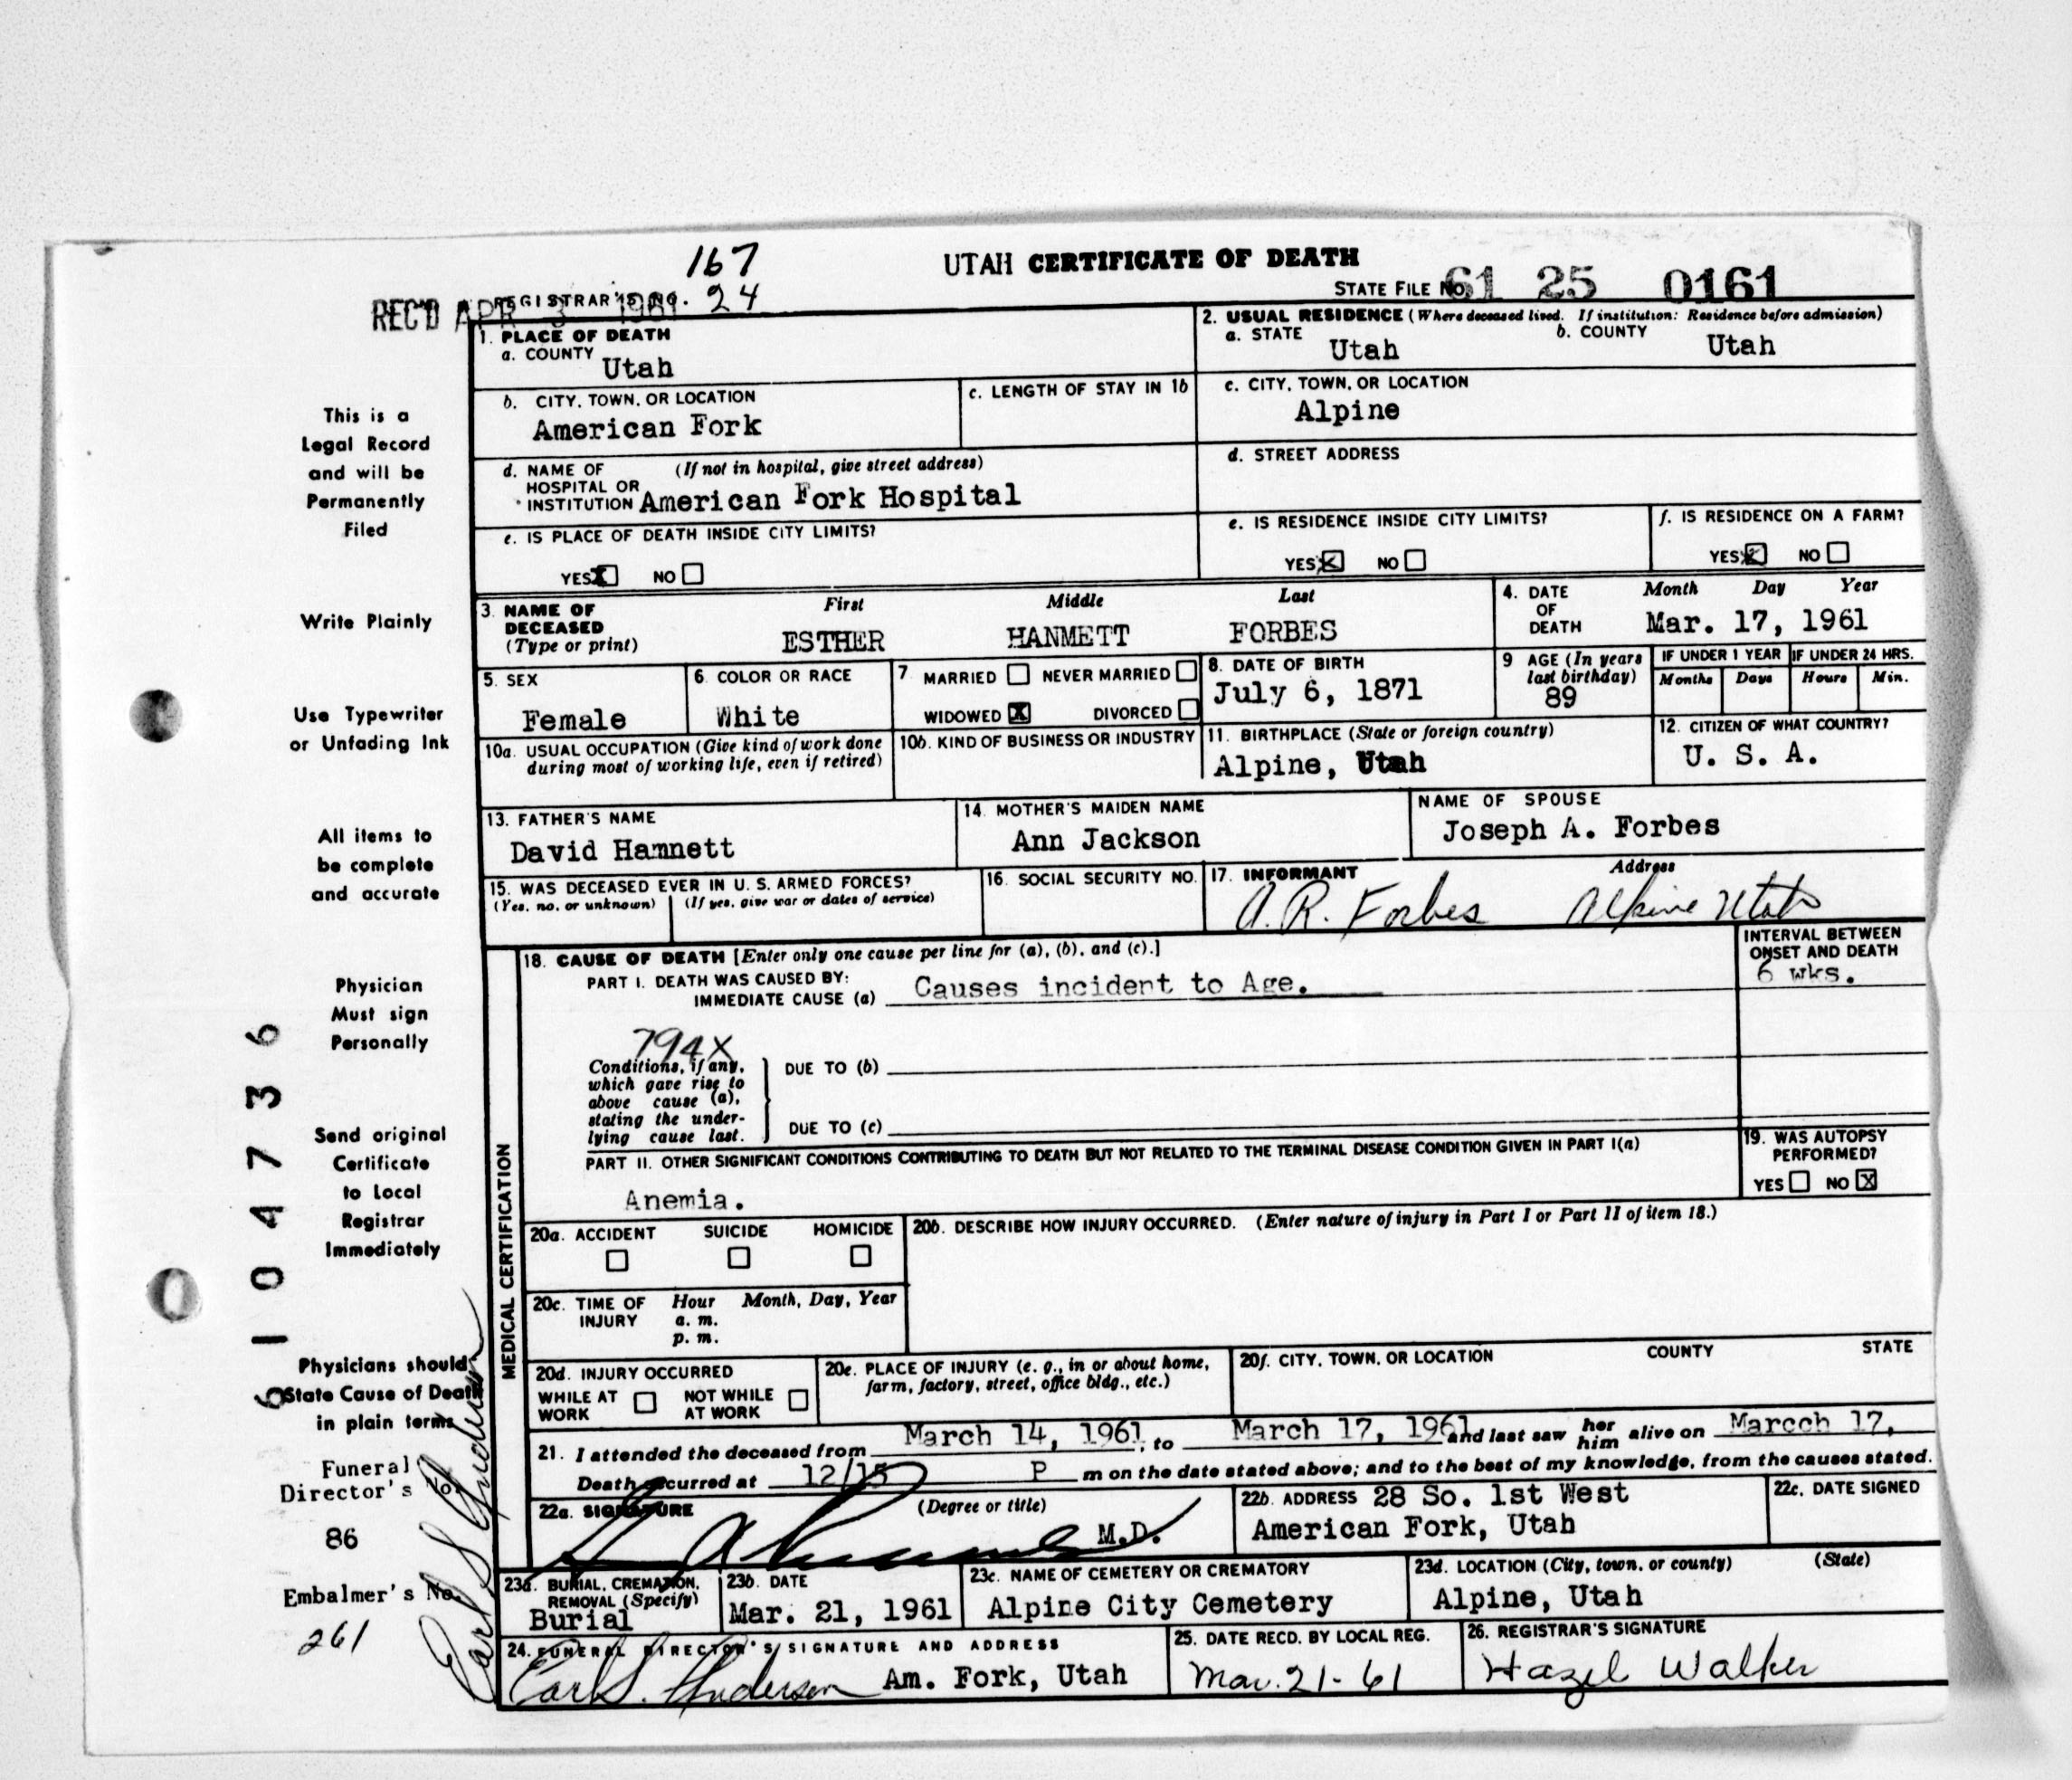 167
UTAH CERTIFICATE OF DEATH
REC'D APR 3 1961 REGISTRAR'S NO. 24
STATE FILE NO. 61 25 0161
1. PLACE OF DEATH
a. COUNTY
Utah
2. USUAL RESIDENCE (Where deceased lived. If institution: Residence before admission)
a. STATE Utah b. COUNTY Utah
b. CITY, TOWN, OR LOCATION
American Fork
c. LENGTH OF STAY IN 1b
c. CITY, TOWN, OR LOCATION
Alpine
d. NAME OF (If not in hospital, give street address)
HOSPITAL OR
INSTITUTION American Fork Hospital
d. STREET ADDRESS
e. IS PLACE OF DEATH INSIDE CITY LIMITS?
YES X NO
e. IS RESIDENCE INSIDE CITY LIMITS?
YES X NO
f. IS RESIDENCE ON A FARM?
YES X NO
3. NAME OF DECEASED (Type or print)
First Middle Last
ESTHER HANMETT FORBES
4. DATE OF DEATH
Month Day Year
Mar. 17, 1961
5. SEX
Female
6. COLOR OR RACE
White
7. MARRIED NEVER MARRIED
WIDOWED X DIVORCED
8. DATE OF BIRTH
July 6, 1871
9 AGE (In years last birthday)
89
IF UNDER 1 YEAR IF UNDER 24 HRS.
Months Days Hours Min.
10a. USUAL OCCUPATION (Give kind of work done
during most of working life, even if retired)
10b. KIND OF BUSINESS OR INDUSTRY
11. BIRTHPLACE (State or foreign country)
Alpine, Utah
12. CITIZEN OF WHAT COUNTRY?
U. S. A.
13. FATHER'S NAME
David Hamnett
14. MOTHER'S MAIDEN NAME
Ann Jackson
NAME OF SPOUSE
Joseph A. Forbes
15. WAS DECEASED EVER IN U. S. ARMED FORCES?
(Yes, no, or unknown) (If yes, give war or dates of service)
16. SOCIAL SECURITY NO.
17. INFORMANT Address
A. R. Forbes Alpine Utah
MEDICAL CERTIFICATION
18. CAUSE OF DEATH [Enter only one cause per line for (a), (b), and (c).]
PART I. DEATH WAS CAUSED BY:
IMMEDIATE CAUSE (a) Causes incident to Age.
INTERVAL BETWEEN
ONSET AND DEATH
6 wks.
794X
Conditions, if any,
which gave rise to
above cause (a),
stating the under-
lying cause last.
DUE TO (b)
DUE TO (c)
PART II. OTHER SIGNIFICANT CONDITIONS CONTRIBUTING TO DEATH BUT NOT RELATED TO THE TERMINAL DISEASE CONDITION GIVEN IN PART I(a)
Anemia.
19. WAS AUTOPSY
PERFORMED?
YES NO X
20a. ACCIDENT SUICIDE HOMICIDE
20b. DESCRIBE HOW INJURY OCCURRED. (Enter nature of injury in Part I or Part II of item 18.)
20c. TIME OF INJURY Hour Month, Day, Year
a. m.
p. m.
20d. INJURY OCCURRED
WHILE AT WORK NOT WHILE AT WORK
20e. PLACE OF INJURY (e. g., in or about home,
farm, factory, street, office bldg., etc.)
20f. CITY, TOWN, OR LOCATION COUNTY STATE
21. I attended the deceased from March 14, 1961, to March 17, 1961 and last saw her him alive on Marcch 17,
Death occurred at 12/15 P m on the date stated above; and to the best of my knowledge, from the causes stated.
22a. SIGNATURE (Degree or title)
M.D.
22b. ADDRESS 28 So. 1st West
American Fork, Utah
22c. DATE SIGNED
23a. BURIAL, CREMATION,
REMOVAL (Specify)
Burial
23b. DATE
Mar. 21, 1961
23c. NAME OF CEMETERY OR CREMATORY
Alpine City Cemetery
23d. LOCATION (City, town, or county) (State)
Alpine, Utah
24. FUNERAL DIRECTOR'S SIGNATURE AND ADDRESS
Earl S. Anderson Am. Fork, Utah
25. DATE RECD. BY LOCAL REG.
Mar. 21-61
26. REGISTRAR'S SIGNATURE
Hazel Walker
This is a
Legal Record
and will be
Permanently
Filed
Write Plainly
Use Typewriter
or Unfading Ink
All items to
be complete
and accurate
Physician
Must sign
Personally
Send original
Certificate
to Local
Registrar
Immediately
Physicians should
State Cause of Death
in plain terms
Funeral
Director's No.
86
Embalmer's No.
261
6104736
Earl S Anderson